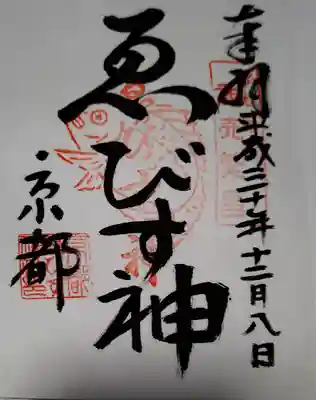 奉拝 平成三十年十二月八日
ゑびす神
京都